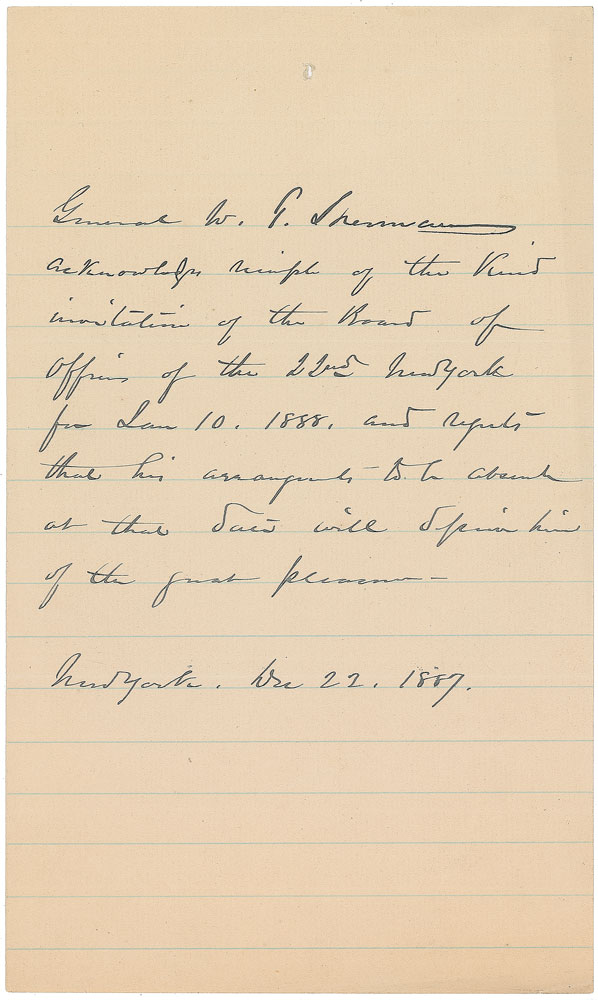 General W. T. Sherman
acknowledges receipt of the Kind
invitation of the Board of
Officers of the 22nd New York
for Jan 10. 1888. and regrets
that his arrangements to be absent
at that date will deprive him
of the great pleasure—
New York. Dec 22. 1887.